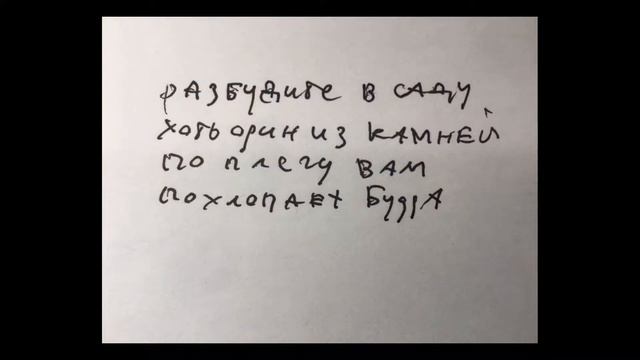 разбудите в саду
хоть один из камней
по плечу вам
похлопает Будда